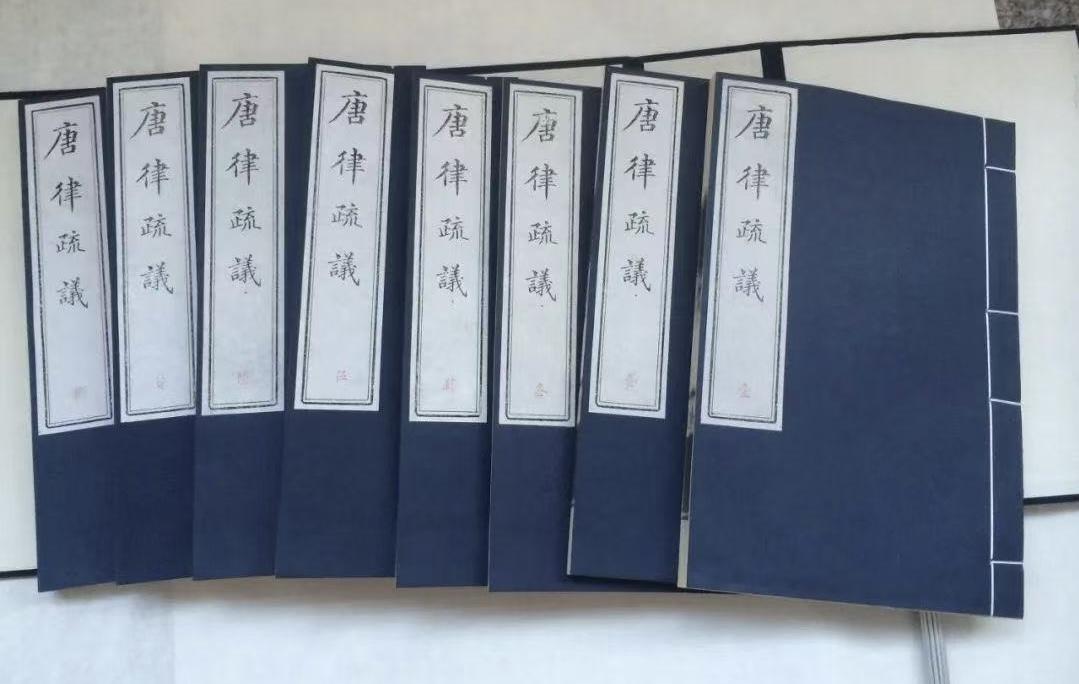 唐律疏議
壹
唐律疏議
唐律疏議
叁
唐律疏議
唐律疏議
伍
唐律疏議
陸
唐律疏議
唐律疏議